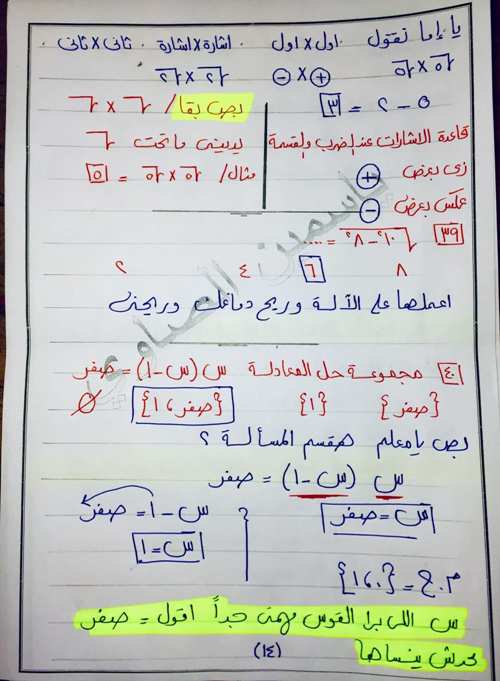 يا إما نقول اول × اول اشارة × اشارة ثانى × ثانى
√٥ × √٥ + × − √٢ × √٢
٥ − ٢ = ٣
بص بقا / √ × √
قاعدة الاشارات عند الضرب والقسمة
يدينى ما تحت √
زى بعض +
مثال / √٥ × √٥ = ٥
عكس بعض −
٣٩ √١٠² − ٨² = ....
٨ ٦ ٤ ٢
اعملها على الآلة وريح دماغك وريحنى
ياسمين الصاوي
٤٠ مجموعة حل المعادلة س (س − ١) = صفر
{صفر} {١} {صفر ، ١} ∅
بص يا معلم هقسم المسألة ؟
س (س − ١) = صفر
س = صفر
س − ١ = صفر
س = ١
م.ح = {٠ ، ١}
س اللى برا القوس مهمة جداً اقول = صفر
محدش ينساها
(١٤)